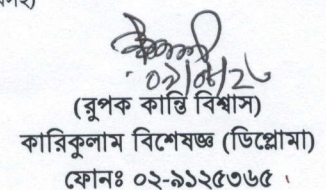 (রুপক কান্তি বিশ্বাস)
কারিকুলাম বিশেষজ্ঞ (ডিপ্লোমা)
ফোনঃ ০২-৯১২৫৩৬৫